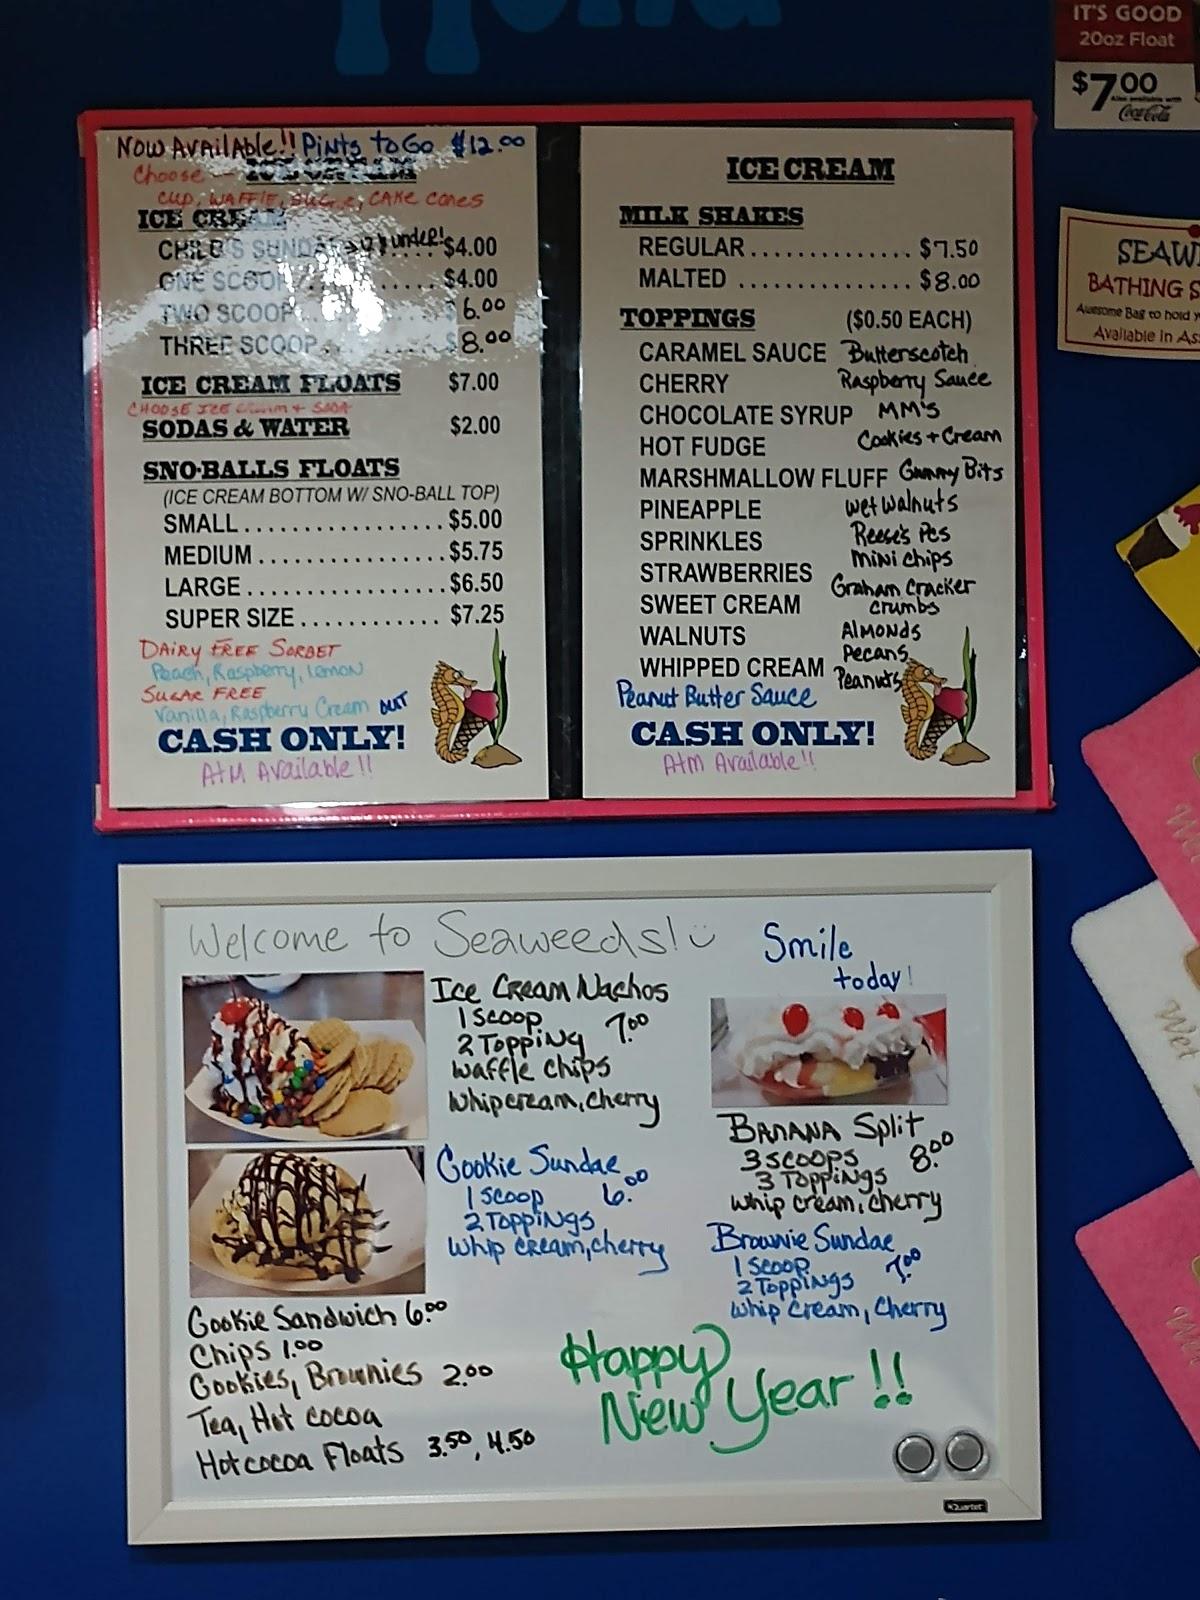 IT'S GOOD
20oz Float
$7.00
Also available with
Coca-Cola
Now Available!! Pints to Go $12.00
Choose - ICE CREAM
Cup, Waffle, Sugar, Cake Cones
ICE CREAM
CHILD'S SUNDAE 12 & under! $4.00
ONE SCOOP $4.00
TWO SCOOP $6.00
THREE SCOOP $8.00
ICE CREAM FLOATS $7.00
Choose Ice Cream + Soda
SODAS & WATER $2.00
SNO-BALLS FLOATS
(ICE CREAM BOTTOM W/ SNO-BALL TOP)
SMALL $5.00
MEDIUM $5.75
LARGE $6.50
SUPER SIZE $7.25
Dairy Free Sorbet
Peach, Raspberry, Lemon
Sugar Free
Vanilla, Raspberry Cream OUT
CASH ONLY!
ATM Available!!
ICE CREAM
MILK SHAKES
REGULAR $7.50
MALTED $8.00
TOPPINGS ($0.50 EACH)
CARAMEL SAUCE Butterscotch
CHERRY Raspberry Sauce
CHOCOLATE SYRUP MM's
HOT FUDGE Cookies + Cream
MARSHMALLOW FLUFF Gummy Bits
PINEAPPLE Wet Walnuts
SPRINKLES Reese's Pcs
Mini Chips
STRAWBERRIES Graham Cracker
SWEET CREAM Crumbs
WALNUTS Almonds
Pecans
WHIPPED CREAM Peanuts
Peanut Butter Sauce
CASH ONLY!
ATM Available!!
SEAW
BATHING S
Awesome Bag to hold y
Available in As
Welcome to Seaweeds!
Smile
today!
Ice Cream Nachos
1 Scoop 7.00
2 Topping
Waffle Chips
Whipcream, Cherry
Cookie Sundae
1 Scoop 6.00
2 Toppings
Whip Cream, Cherry
Banana Split
3 Scoops 8.00
3 Toppings
Whip cream, cherry
Brownie Sundae
1 Scoop 7.00
2 Toppings
Whip Cream, Cherry
Cookie Sandwich 6.00
Chips 1.00
Cookies, Brownies 2.00
Tea, Hot cocoa
Hot cocoa Floats 3.50, 4.50
Happy
New Year!!
Quartet
Wet